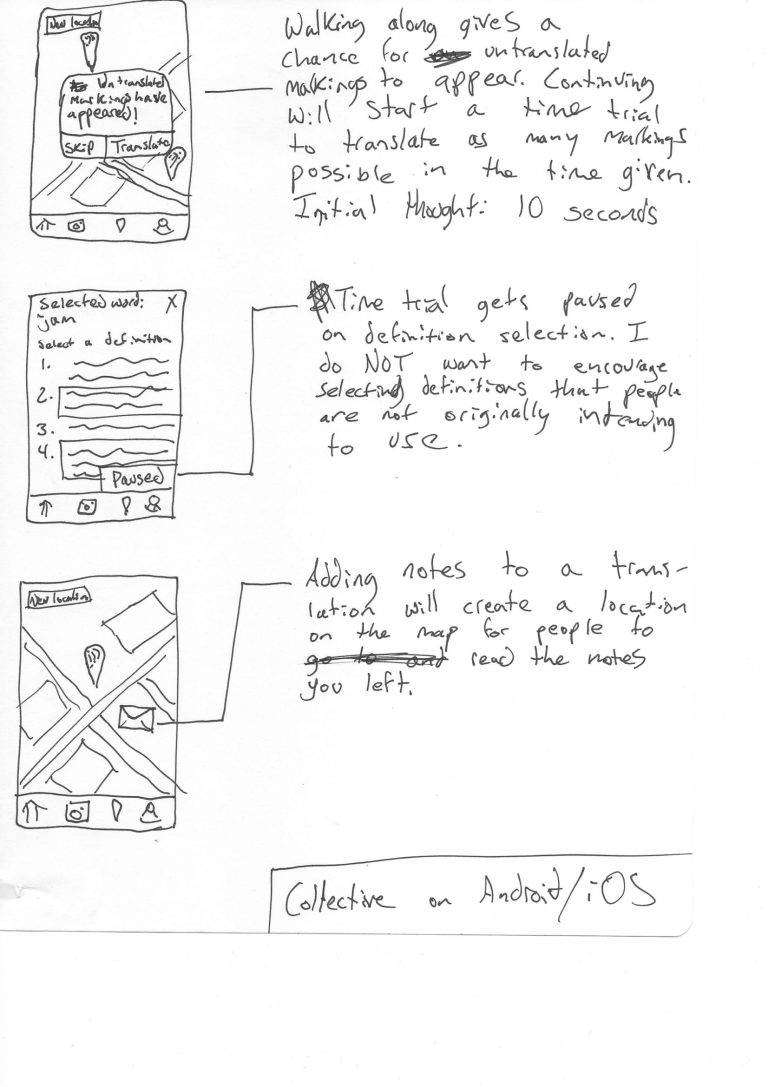 New location
Untranslated
markings have
appeared!
Skip
Translate
Walking along gives a
chance for untranslated
makings to appear. Continuing
will start a time trial
to translate as many markings
possible in the time given.
Initial thought: 10 seconds
Selected word:
X
jam
Select a definition
1.
2.
3.
4.
Paused
Time trial gets paused
on definition selection. I
do NOT want to encourage
selecting definitions that people
are not originally intending
to use.
New location
Adding notes to a trans-
lation will create a location
on the map for people to
go to and read the notes
you left.
Collective on Android/iOS